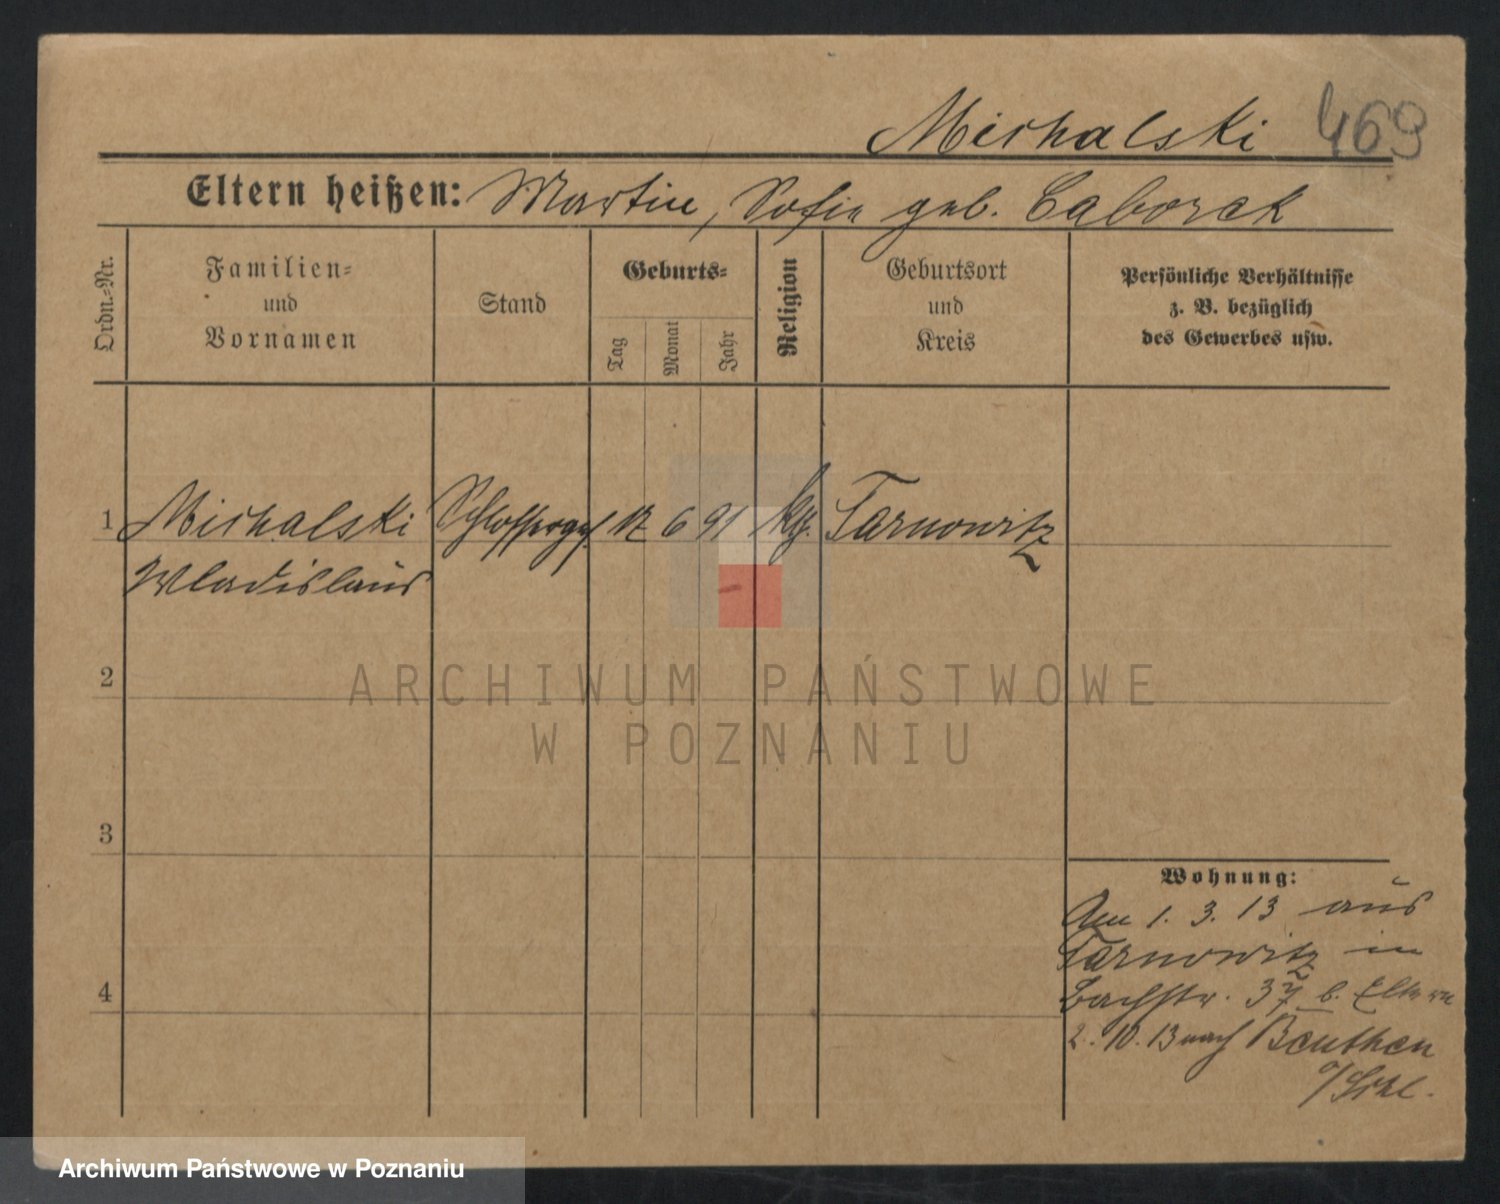 Michalski 469
Eltern heißen: Martin, Sofie geb. Caborek
Ordn.-Nr.
Familien-
und
Vornamen
Stand
Geburts-
Tag
Monat
Jahr
Religion
Geburtsort
und
Kreis
Persönliche Verhältnisse
z. B. bezüglich
des Gewerbes usw.
1 Michalski Schlosserges. 17 6 91 kth. Tarnowitz
Wladislaus
2
ARCHIWUM PAŃSTWOWE
W POZNANIU
3
Wohnung:
Am 1. 3. 13 aus
Tarnowitz in
Bachstr. b. Eltern
4
2. 10. 13 nach Beuthen
Archiwum Państwowe w Poznaniu